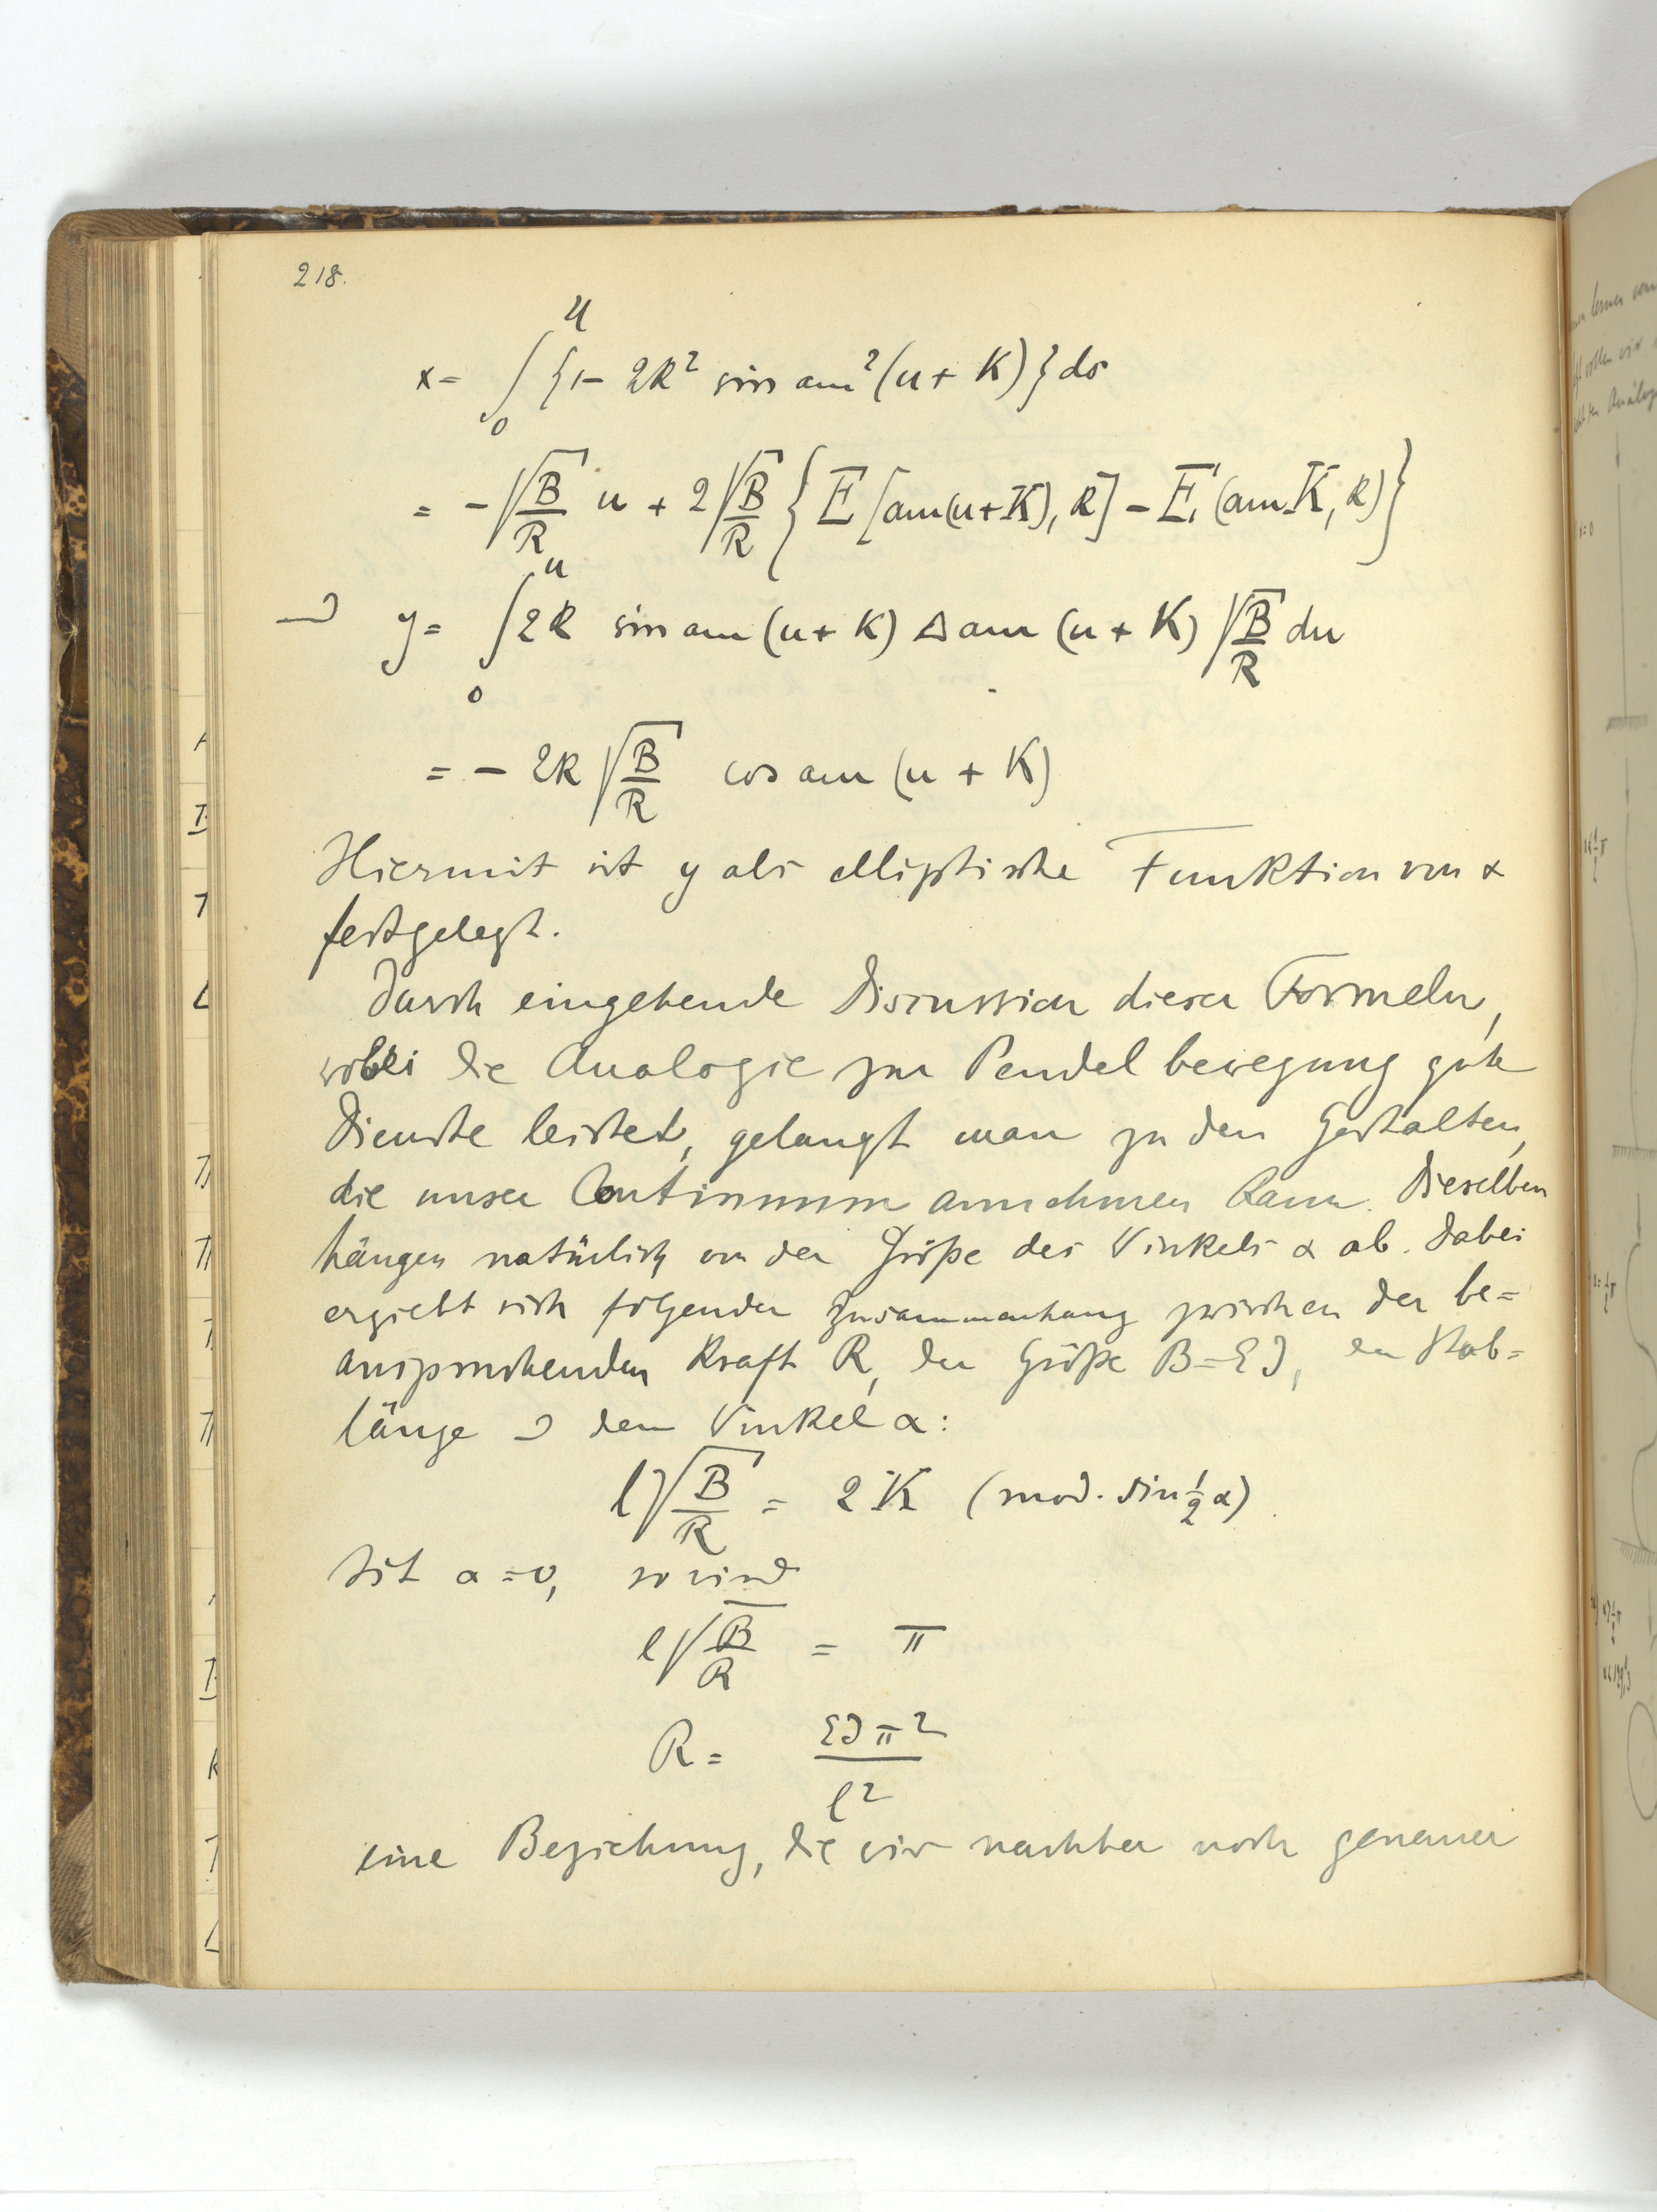 218.
x = ∫₀ᵘ {1 - 2k² sin am² (u + K)} ds
= - √(B/R) u + 2 √(B/R) { E [am (u + K), k] - E, (am K, k) }
y = ∫₀ᵘ 2k sin am (u + K) Δ am (u + K) √(B/R) du
= - 2k √(B/R) cos am (u + K)
Hiermit ist y als elliptische Funktion von x
festgelegt.
Durch eingehende Discussion dieser Formeln,
wobei die Analogie zur Pendelbewegung gute
Dienste leistet, gelangt man zu den Gestalten,
die unser Continuum annehmen kann. Dieselben
hängen natürlich von der Größe des Winkels α ab. Dabei
ergiebt sich folgender Zusammenhang zwischen der be=
anspruchenden Kraft R, der Größe B = EJ, der Stab=
länge dem Winkel α:
l √(B/R) = 2 K (mod. sin ½ α)
Ist α = 0, so wird
l √(B/R) = π
R = EJπ² / l²
eine Beziehung, die wir nachher noch genauer